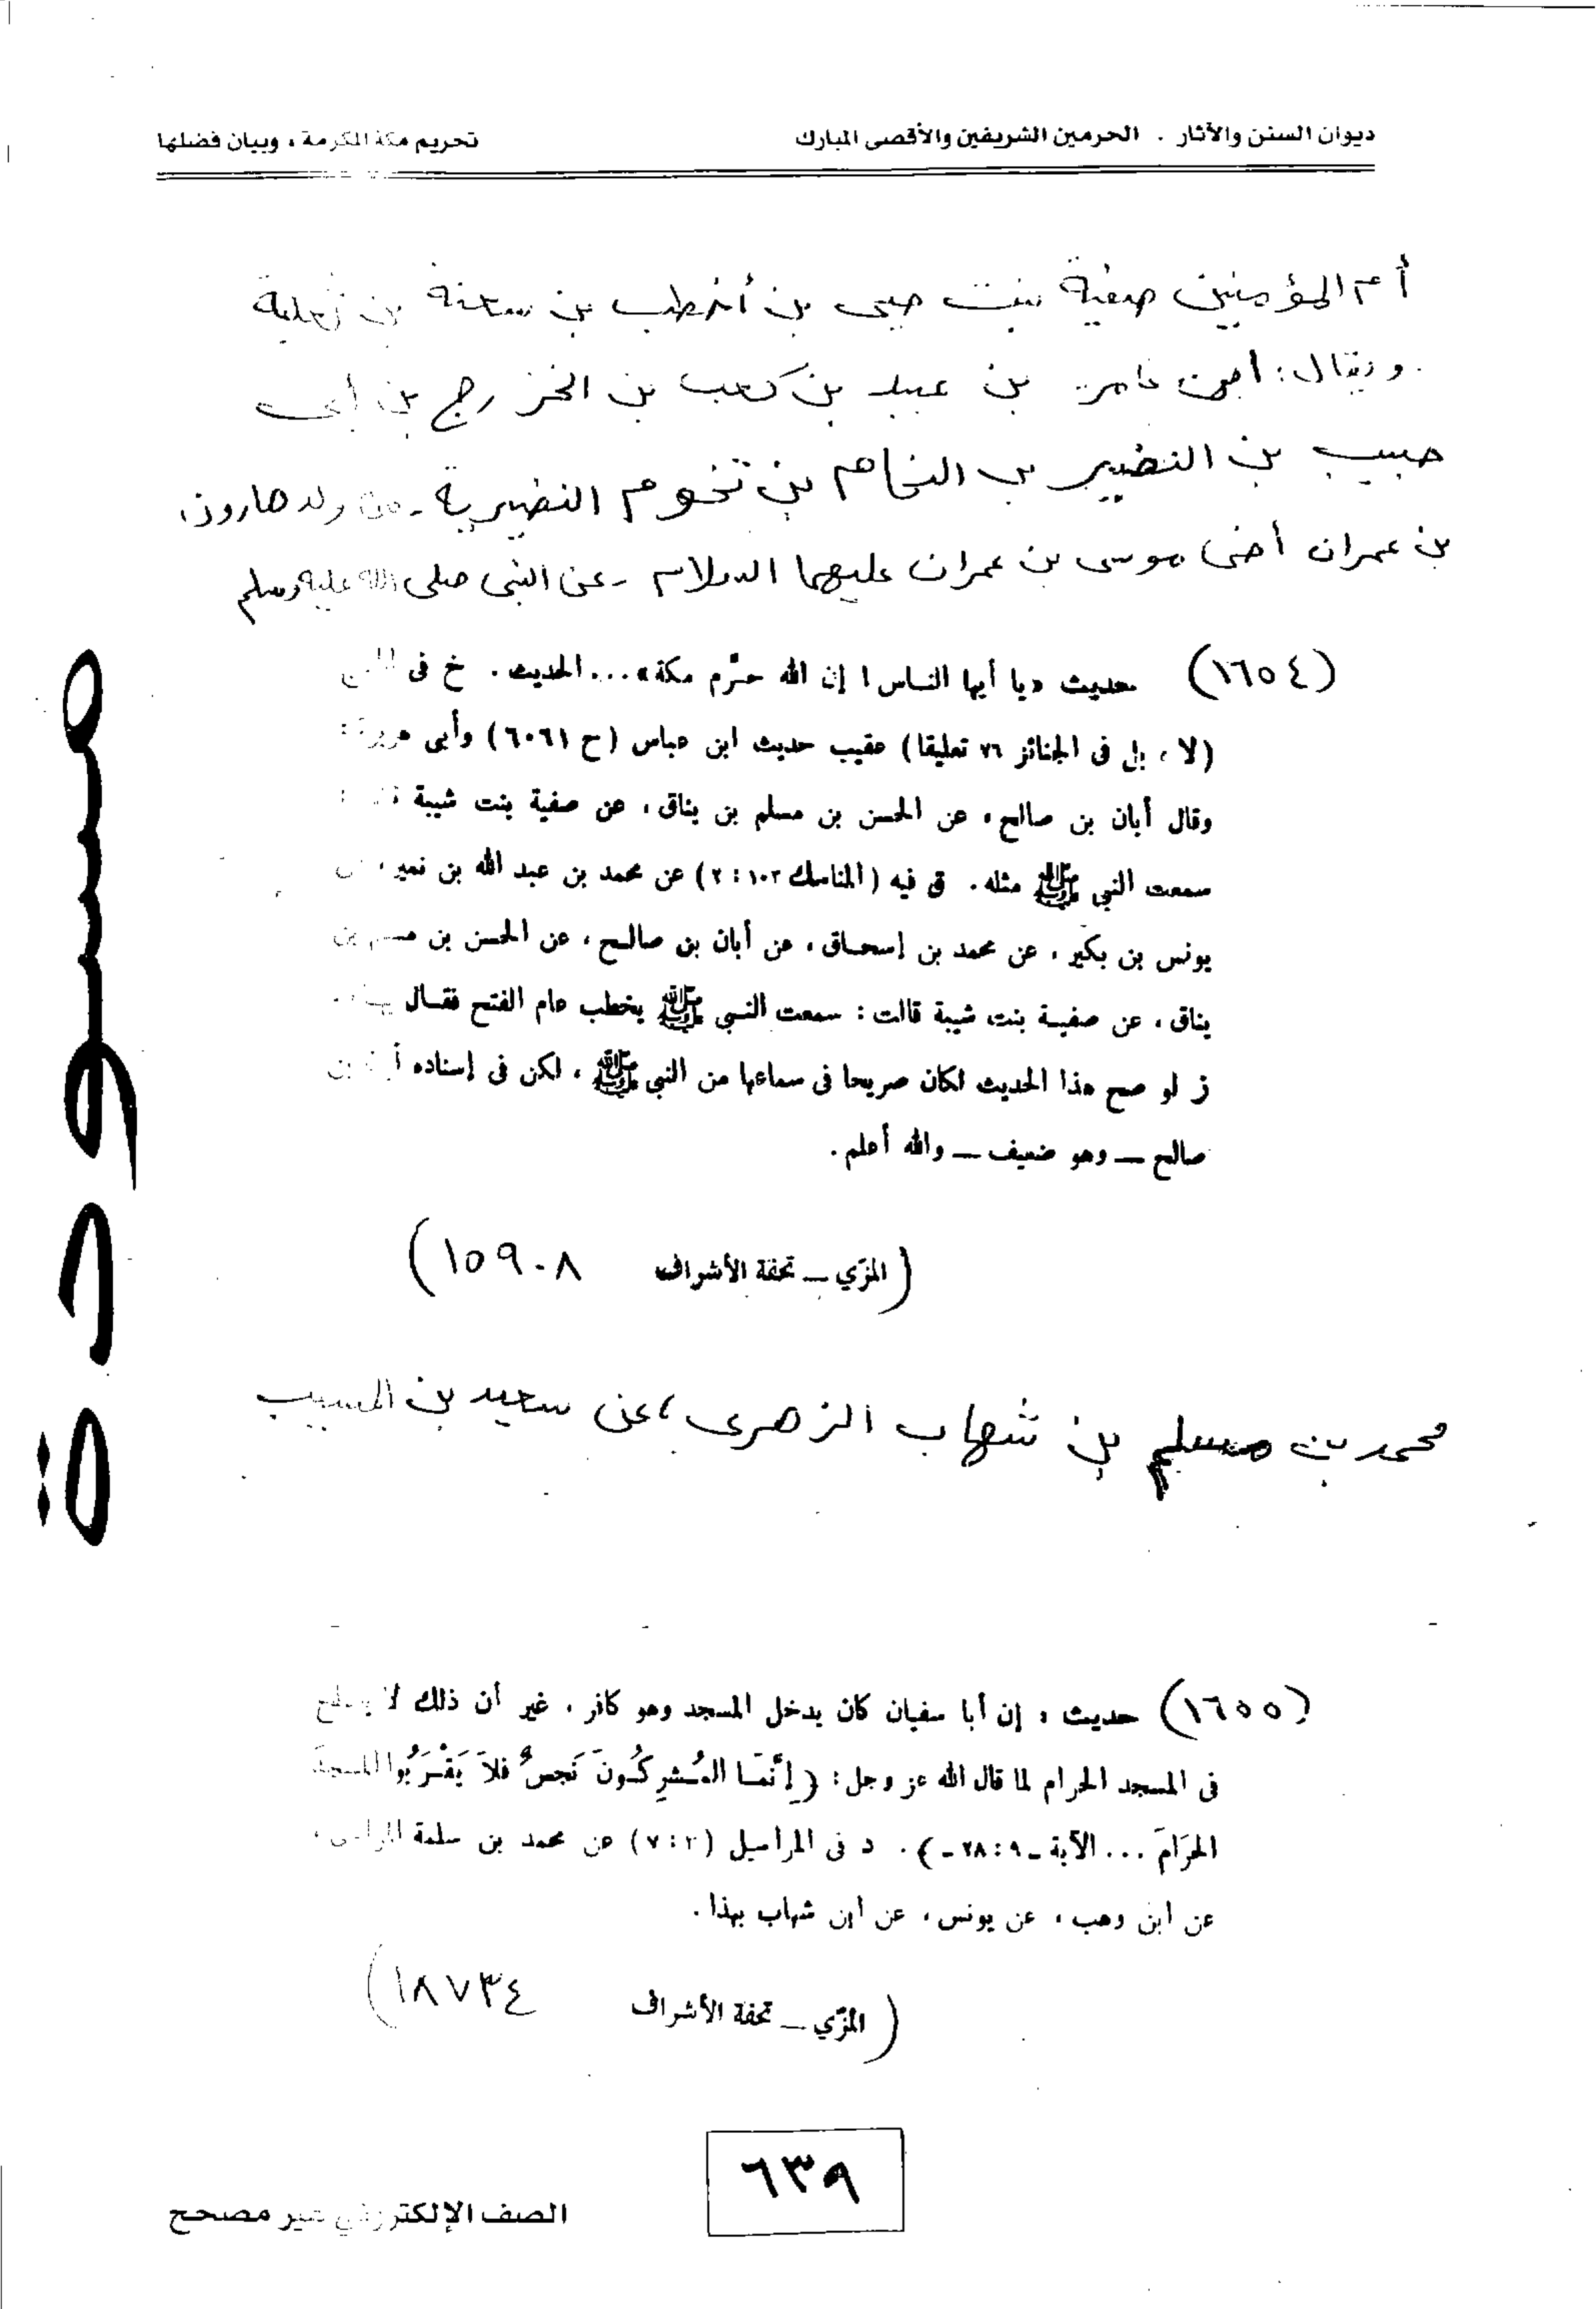 ديوان السنن والآثار . الحرمين الشريفين والأقصى المبارك
تحريم مكة المكرمة ، وبيان فضلها
أم المؤمنين صفية بنت حيى بن أخطب بن سعنة بن ثعلبة
ويقال: ابن عامر بن عبيد بن كعب بن الخزرج بن أبى
حبيب بن النضير بن النحام بن تخوم النضيرية ـ من ولد هارون
بن عمران أخى موسى بن عمران عليهما السلام ـ عن النبى صلى الله عليه وسلم
(١٦٥٤) حديث «يا أيها الناس! إن الله حرّم مكة» ... الحديث . خ فى
(لا ، بل فى الجنائز ٧٦ تعليقا) عقيب حديث ابن عباس (ح ٦٠٦١) وأبى هريرة :
وقال أبان بن صالح ، عن الحسن بن مسلم بن يناق ، عن صفية بنت شيبة
سمعت النبي ﷺ مثله . ق فيه (المناسك ١٠٣ : ٢) عن محمد بن عبد الله بن نمير ،
يونس بن بكير ، عن محمد بن إسحاق ، عن أبان بن صالح ، عن الحسن بن مسلم بن
يناق ، عن صفية بنت شيبة قالت : سمعت النبي ﷺ يخطب عام الفتح فقال
ز لو صح هذا الحديث لكان صريحا فى سماعها من النبي ﷺ ، لكن فى إسناده أبان بن
صالح ــ وهو ضعيف ــ والله أعلم .
(المزّي ــ تحفة الأشراف ١٥٩٠٨)
محمد بن مسلم بن شهاب الزهرى ، عن سعيد بن المسيب
(١٦٥٥) حديث : إن أبا سفيان كان يدخل المسجد وهو كافر ، غير أن ذلك لا يصلح
فى المسجد الحرام لما قال الله عز وجل : ﴿ إِنَّمَا الْمُشْرِكُونَ نَجَسٌ فَلاَ يَقْرَبُوا الْمَسجدَ
الحَرَامَ ... الآية ـ ٩ : ٢٨ ـ ﴾ . د فى المراسيل (٣ : ٧) عن محمد بن سلمة المرادى ،
عن ابن وهب ، عن يونس ، عن ابن شهاب بهذا .
(المزّي ــ تحفة الأشراف ١٨٧٣٤)
٦٣٩
الصف الإلكتروني غير مصحح
مسودة